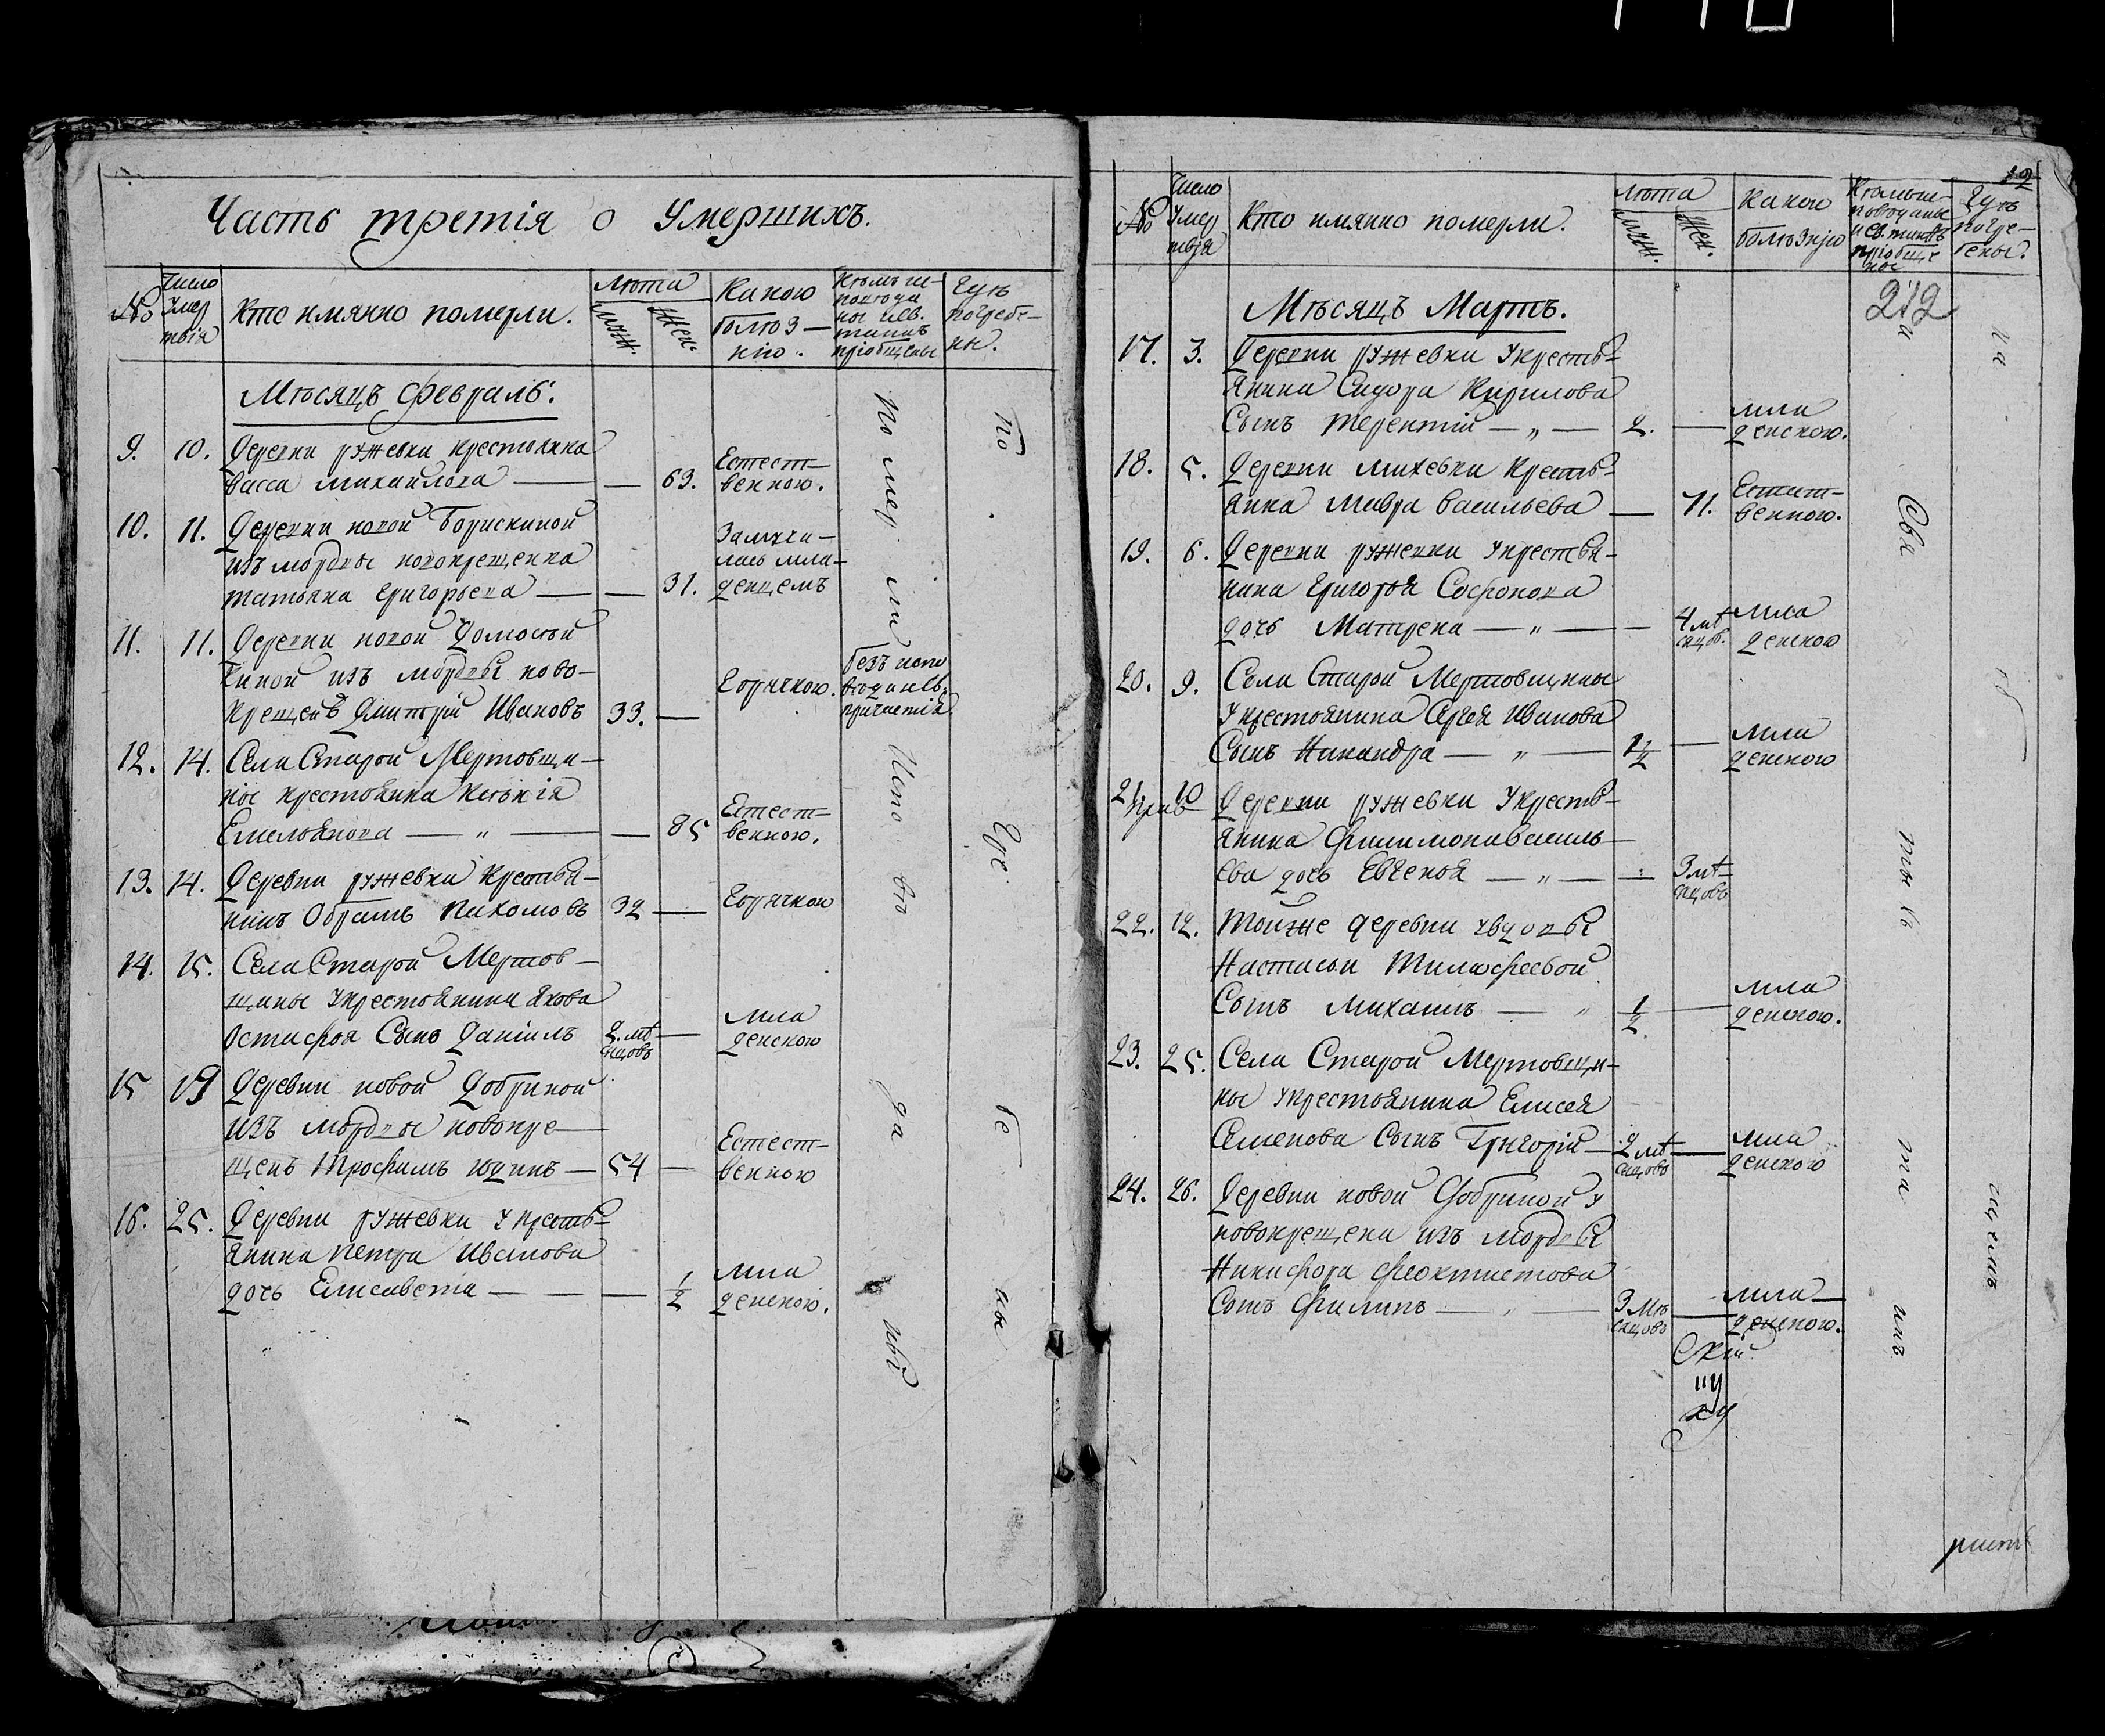 Часть третія о Умершихъ.
№
Число Умер твія
Кто имянно померли.
Лѣта
муж.
жен.
Какою болѣз— нію.
Гдѣ погребе— ны.
Мѣсяцъ Февраль.
9. 10. Деревни ружевки крестьянка
васса михайлова — — 63. Естест— венною.
10. 11. Деревни новой Борискиной
изъ мордвы новокрещенка
татьяна Григорьева — — 31. Замучи— лась мла— денцемъ
11. 11. Деревни новой
киной изъ мордвы ново—
крещенъ Дмитрій Ивановъ 33. — Горячкою. безъ испо
причастія
12. 14. Села Старой Мертовщи—
ны крестьянка Ксенія
Емельянова — „ — — 85 Естест— венною.
13. 14. Деревни ружевки крестья—
нинъ Обрамъ Пахомовъ 32 — Горячкою
14. 15. Села Старой Мертов—
щины укрестьянина Якова
Остафья Сынъ Даніилъ 2. мѣ сяцовъ — мла денскою
15 19 Деревни новой Добриной
изъ мордвы новокре—
щенъ Трофимъ юдинъ — 54 — Естест— венною
16. 25. Деревни ружевки у кресть—
янина петра Иванова
дочь Елисавета — — — 1/2 мла денскою.
По мер ли Испо вѣ да ны
По Гре бе ны
12
№
Число Умер твія
Кто имянно померли.
лѣта
муж.
жен.
Какою болѣзнію
Гдѣ погре— бены.
212
Мѣсяцъ Мартъ.
17. 3. Деревни ружевки укресть—
янина Сидора Кирилова
Сынъ терентій — „ — 2. — мла денскою.
18. 5. Деревни михевки кресть—
янка Мавра васильева — 71. Естест— венною.
19. 6. Деревни руженки укрестья—
нина Григорья Софронова
дочь Матрена — „ — — 4 мѣ сяцов. мла денскою
20. 9. Села Старой Мертовщины
укрестьянина Сергея Иванова
Сынъ Никандра — „ — 1 1/2 — мла денскою
21. 10 Деревни ружевки укресть—
янина Филимона василь—
ева дочь Евгенья — „ — — 3 мѣ— сяцовъ
22. 12. Тойже деревни у вдовы
Настасьи Тимофеевой
Сынъ Михаилъ — „ 1/2 — мла денскою.
23. 25. Села Старой Мертовщи—
ны укрестьянина Елисея
Семенова Сынъ Григорій — 2 мѣ сяцовъ — мла денскою
24. 26. Деревни новой Добриной у
новокрещена изъ мордвы
Никифора феоктистова
Сынъ Филипъ — „ — 3 мѣ сяцовъ — мла— денскою.